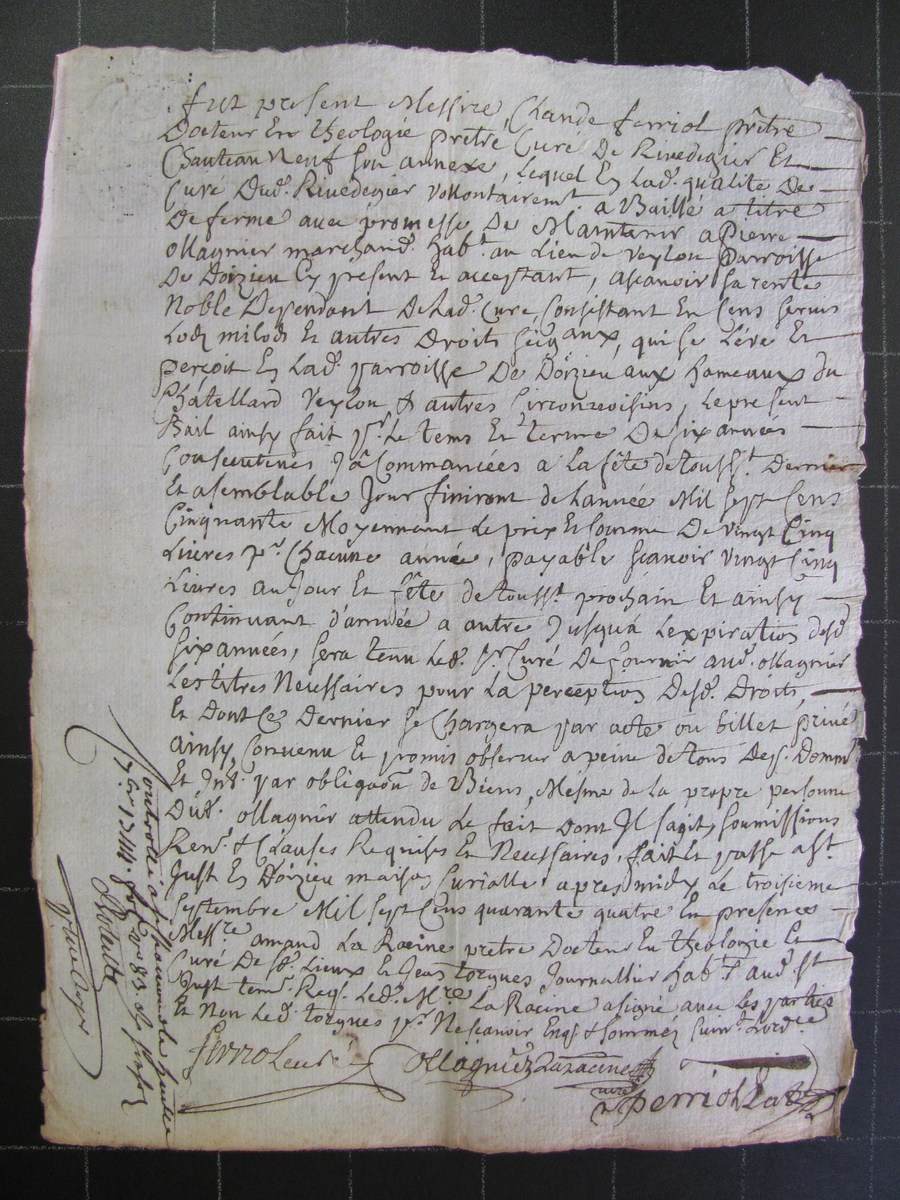 fut present Messire Claude ferriol prêtre
Docteur En theologie prêtre Curé De Rivedegier Et
Chauteau Neuf son annexe, Lequel En Lad. qualité De
Curé Dud. Rivedegier vollontairemt. a Baillé a titre
De ferme avec promesse De Maintenir a Pierre
Ollagnier marchand habt. au Lieu de Veylou Parroisse
De Doizieu Cy present Et acceptant, ascavoir sa rente
Noble Dependant De Lad. Cure, Consistant En Cens servis
Lodz milodz Et autres Droits seigaux, qui se Léve Et
perçoit En Lad. parroisse De Doizieu aux hameaux du
Châtellard Veylou & autres Circonvoisins, Le present
Bail ainsy fait pr. Le tems Et terme De six années
Consecutives Jâ Commancées a La fête de touss.t Dernier
Et a semblable Jour finiront de L'année Mil sept Cens
Cinquante Moyennant Le prix Et somme De vingt Cinq
Livres pr. Chacune année, payable scavoir vingt Cinq
Livres au Jour Et fête de touss.t prochain Et ainsy
Continuant d'année a autre Jusqu'a L'expiration desd.
six années, sera tenu Led. sr. Curé De fournir aud. Ollagnier
Les titres Necessaires pour La perception Desd. Droits,
Et Dont Ce Dernier se Chargera par acte ou billet privé
ainsy Convenu Et promis observer a peine de tous Desp. Domm.
Et Int. par obligaon de Biens, Mesme de la propre personne
Dud. Ollagnier attendu Le fait Dont Il sagit, soumissions
Ren. & Clauses Requises Et Necessaires, fait Et passe a st.
Just En Doizieu maison Curialle apres midy Le troisieme
septembre Mil sept Cens quarante quatre En presences
Messre. amand La Racine pretre Docteur En theologie Et
Curé De sd. Lieux Et Jean torgues Journallier habt. aud. st
Just tem. Req. Led. Mre. La Racine a signé avec Les parties
Et Non Led. torgues pr. Ne scavoir Enq. & sommés suivt. L'ord.ce
ferriol curé Ollagnier Laracine
curé
Perriol
Controllé a st
7bre 1744.